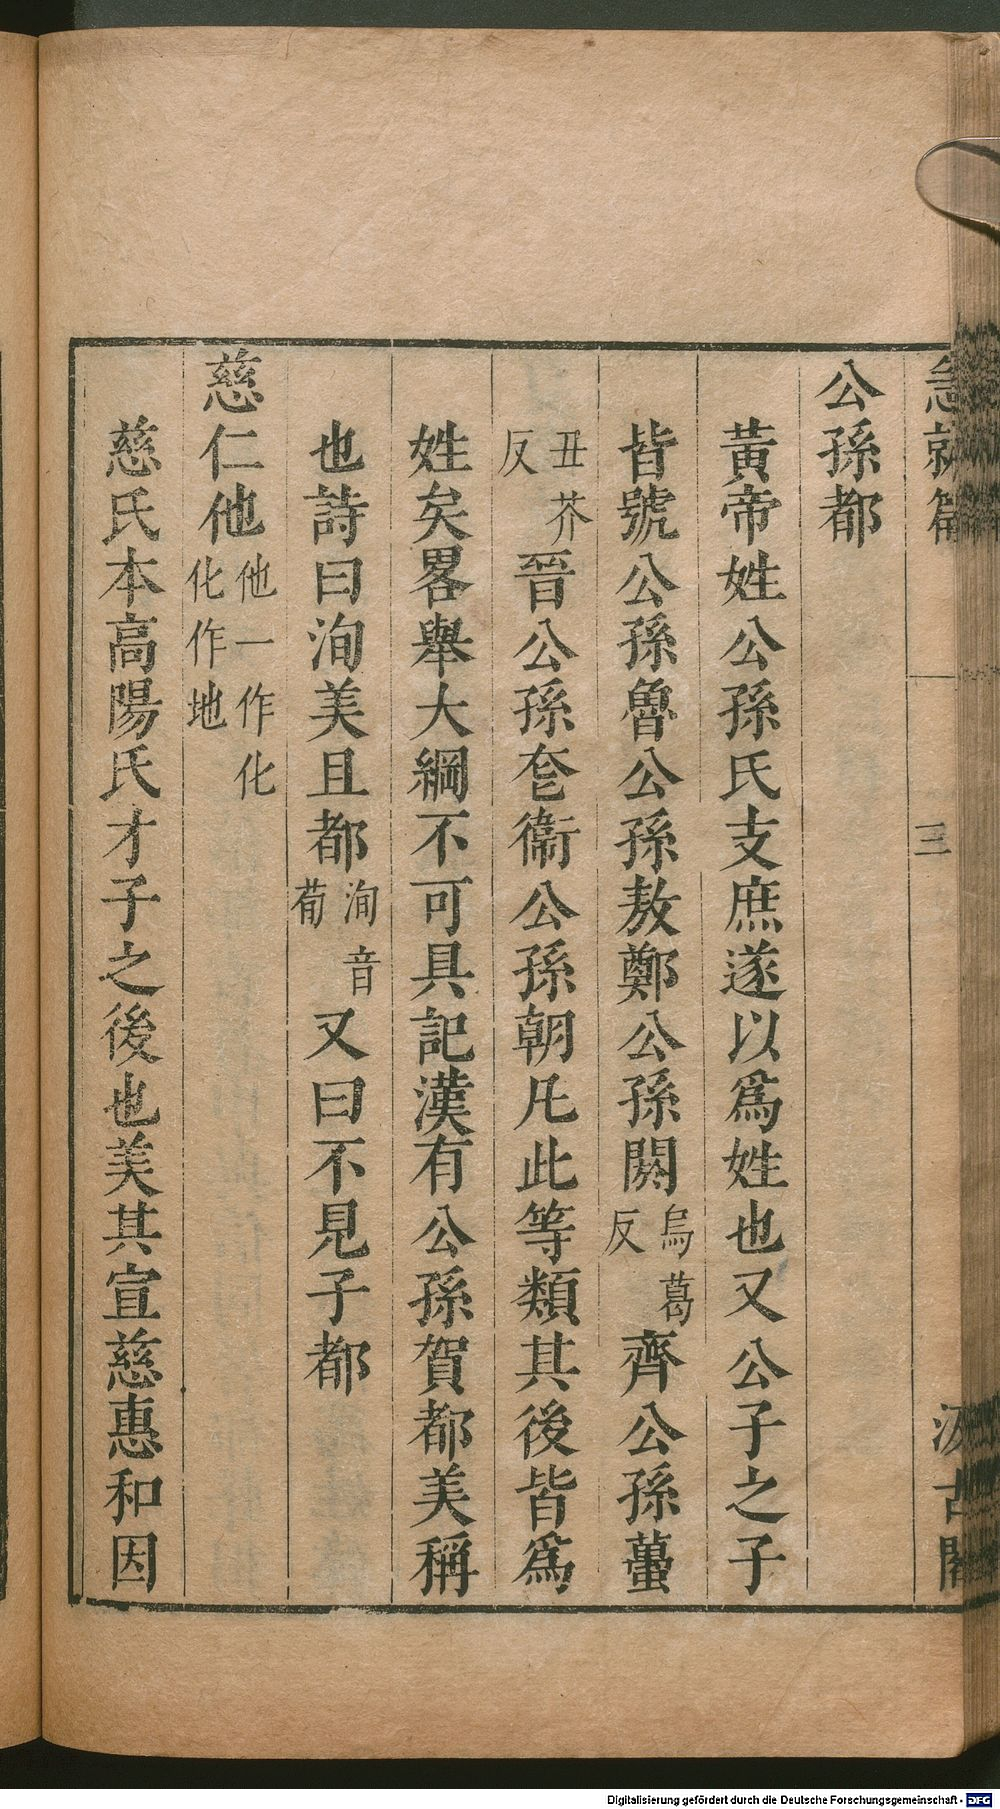 急就篇 三 汲古閣
公孫都
黃帝姓公孫氏支庶遂以爲姓也又公子之子
皆號公孫魯公孫敖鄭公孫閼烏葛反齊公孫蠆
丑芥反晉公孫奆衞公孫朝凡此等類其後皆爲
姓矣畧舉大綱不可具記漢有公孫賀都美稱
也詩曰洵美且都洵音荀又曰不見子都
慈仁他他一作化化作地
慈氏本高陽氏才子之後也美其宣慈惠和因
Digitalisierung gefördert durch die Deutsche Forschungsgemeinschaft - DFG